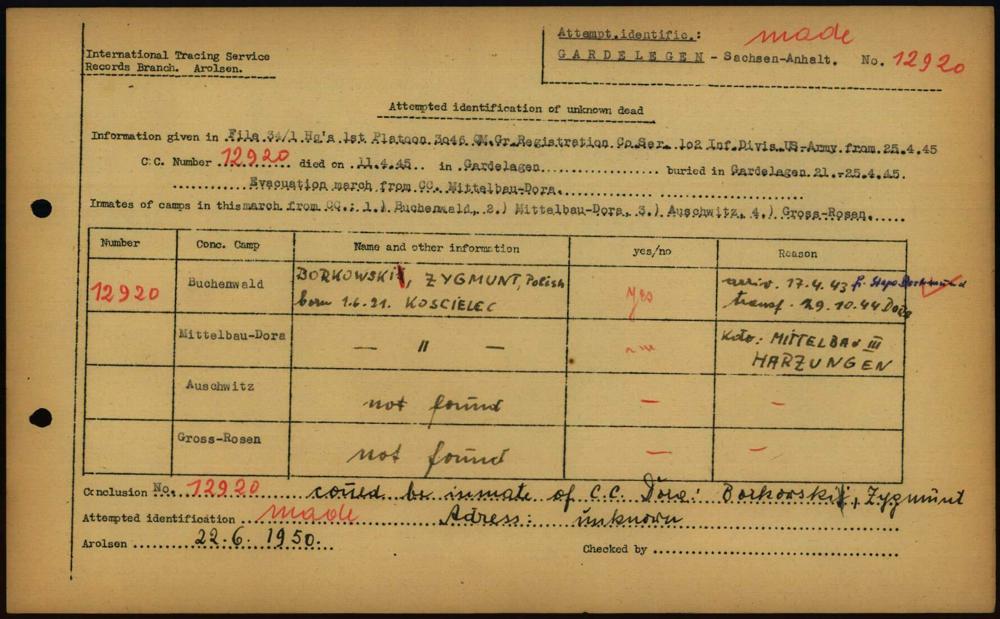 International Tracing Service
Records Branch. Arolsen.
Attempt.identific.: made
GARDELEGEN - Sachsen-Anhalt. No. 12920
Attempted identification of unknown dead
Information given in File 34/1 Hq's 1st Platoon 3046 QM.Gr.Registration Co.Ser. 102 Inf.Divis.US-Army from 25.4.45
C.C. Number 12920 died on 11.4.45 in Gardelegen buried in Gardelegen 21.-25.4.45.
Evacuation march from CC. Mittelbau-Dora.
Inmates of camps in this march from CC.: 1.) Buchenwald, 2.) Mittelbau-Dora, 3.) Auschwitz, 4.) Gross-Rosen.
Number Conc. Camp Name and other information yes/no Reason
12920 Buchenwald BORKOWSKI, ZYGMUNT, Polish yes arriv. 17.4.43
born 1.6.21. KOSCIELEC transf. 29.10.44 Dora
Mittelbau-Dora — " — Kdo: MITTELBAU III
HARZUNGEN
Auschwitz not found — —
Gross-Rosen not found — —
Conclusion No. 12920 could be inmate of C.C. Dora: Borkowski, Zygmunt
Attempted identification made Adress: unknown
Arolsen 22.6.1950. Checked by